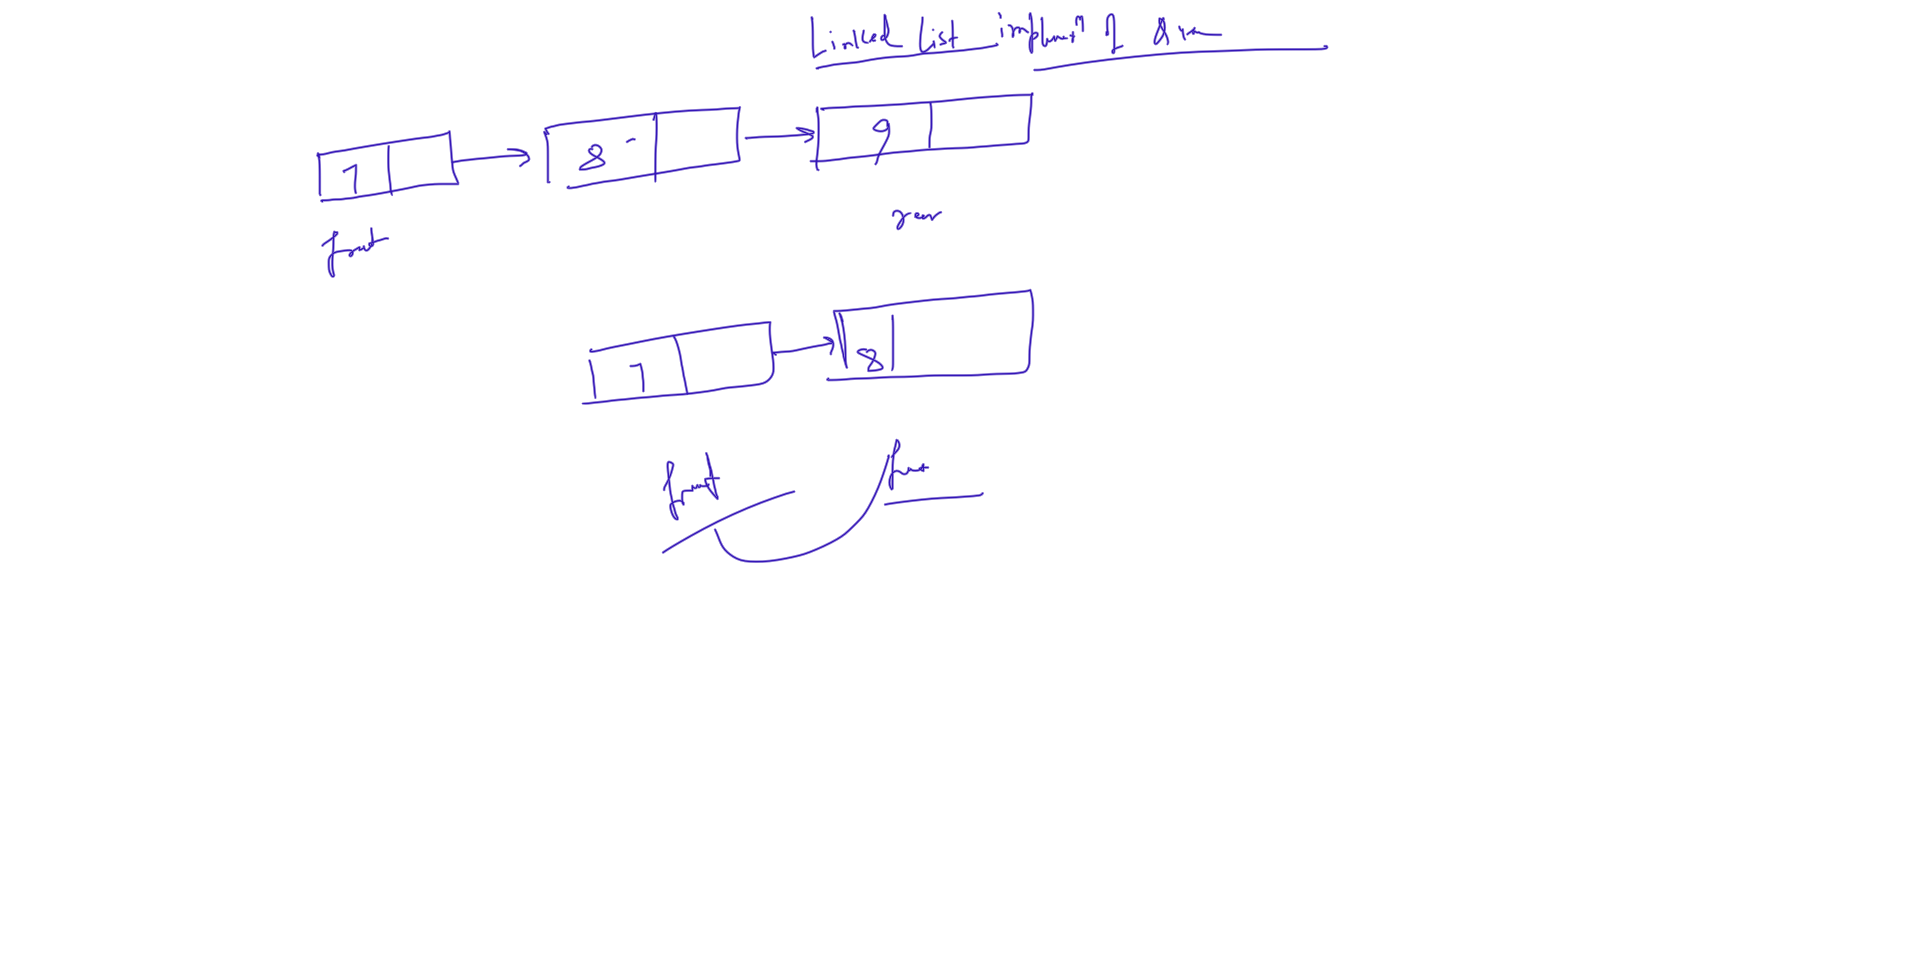 Linked List implemtⁿ of Queue
7 8 9
front rear
7 8
front front